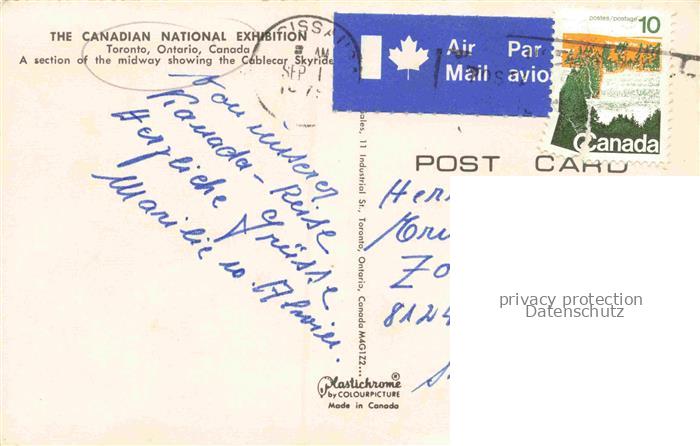 THE CANADIAN NATIONAL EXHIBITION
Toronto, Ontario, Canada
A section of the midway showing the Cablecar Skyride
SEP 1
AM
Air Mail
Par avio
postes/postage 10
Canada
POST CARD
Von unserer
Kanada-Reise
Herzliche Grüsse
Marilie u.
ales, 11 Industrial St., Toronto, Ontario, Canada M4G1Z2...
Her
Zo
812
privacy protection
Datenschutz
Plastichrome®
by COLOURPICTURE
Made in Canada